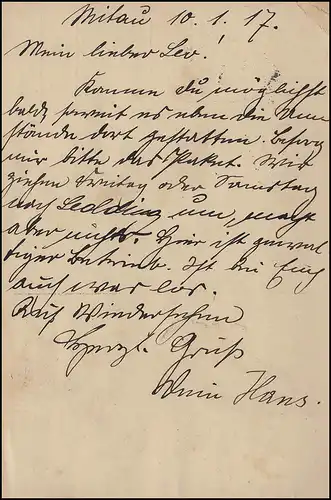 Mitau 10. 1. 17.
Mein lieber Leo!
Komme du möglichst
bald, soweit es eben die Um
stände dort gestatten. Besorg
mir bitte das Paket. Wir
ziehen Freitag oder Samstag
nach um, macht
aber nichts. Hier ist gewal
tiger Betrieb. Ist bei Euch
auch was los.
Auf Wiedersehen
Herzl. Gruß
Dein Hans.